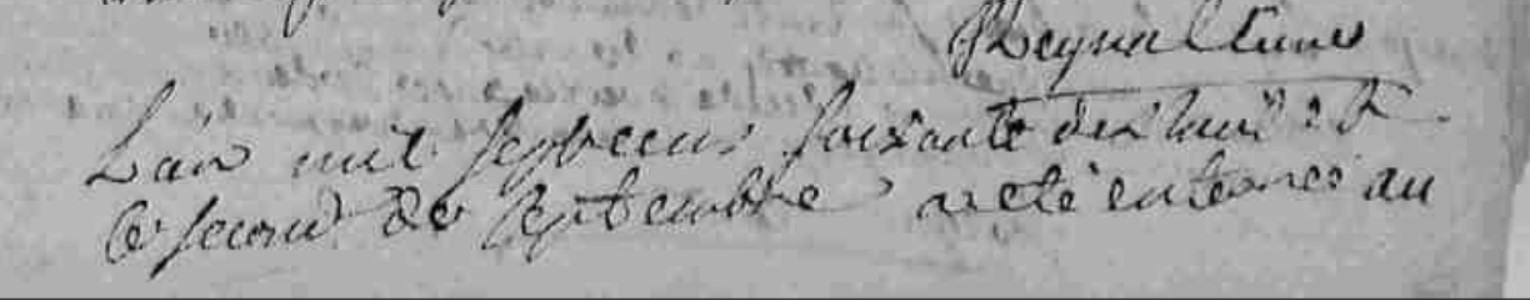 Reynal Curé
L'an mil sept cens soixante dix huit et
le second de septembre a eté enterreé au